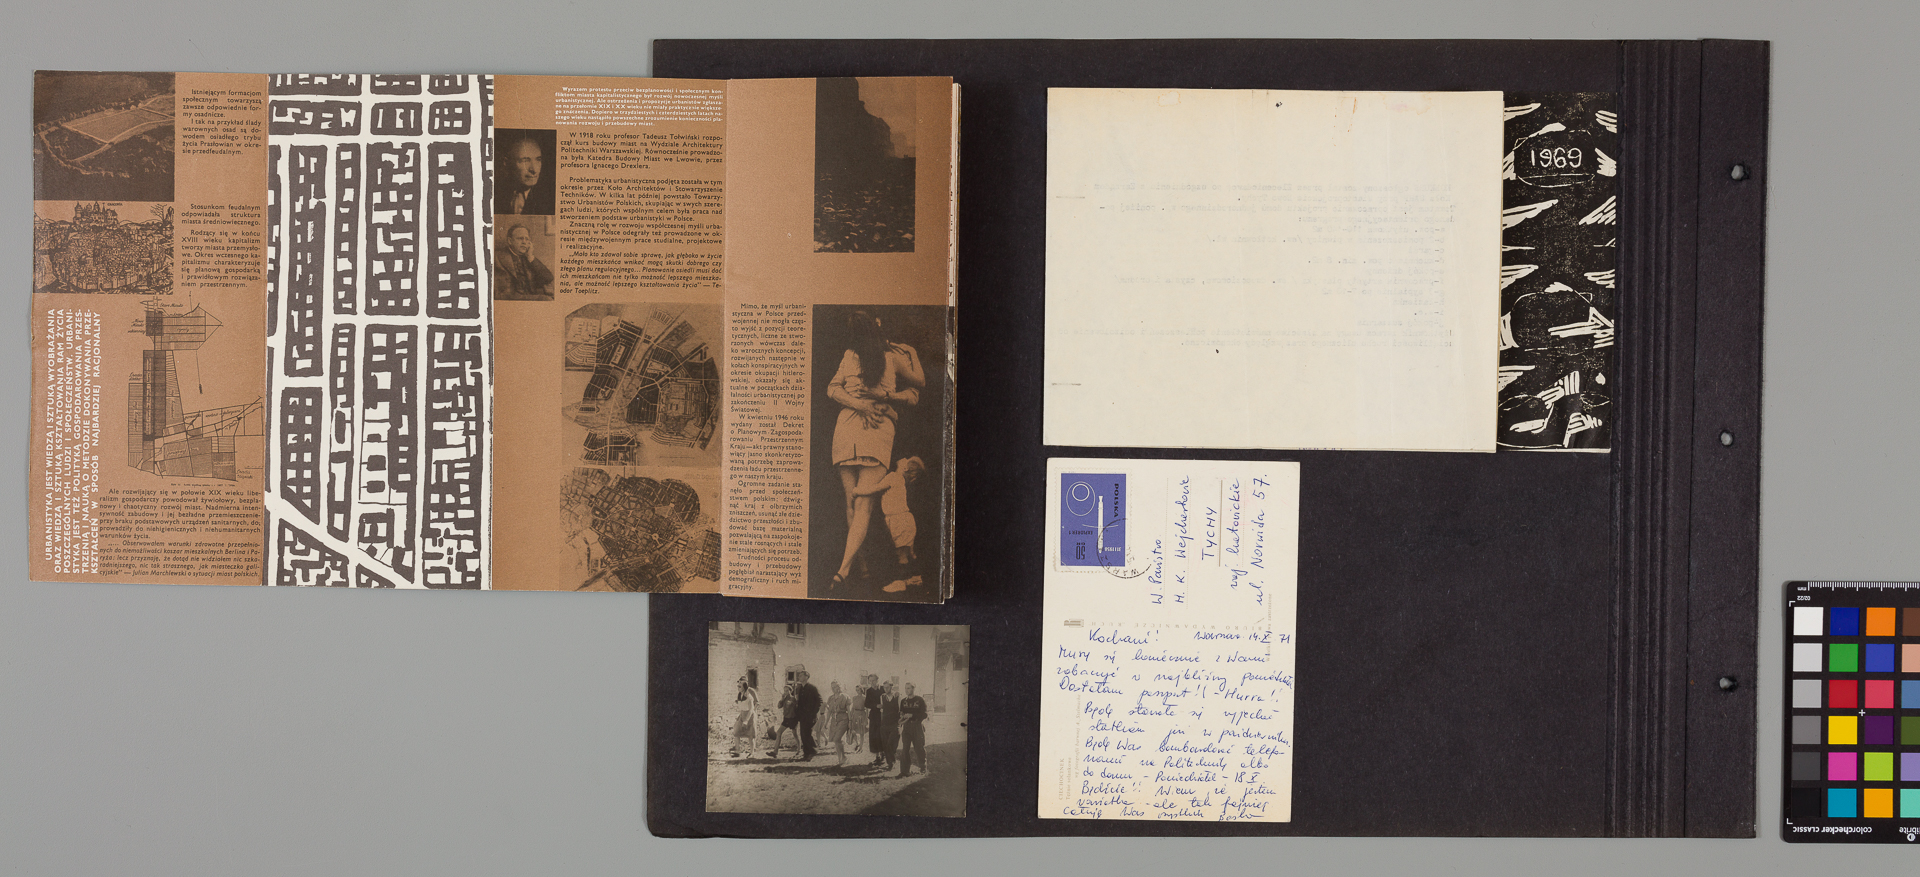 Istniejącym formacjom
społecznym towarzyszą
zawsze odpowiednie for-
my osadnicze.
I tak na przykład ślady
warownych osad są do-
wodem osiadłego trybu
życia Prasłowian w okre-
sie przedfeudalnym.
Stosunkom feudalnym
odpowiadała struktura
miasta średniowiecznego.
Rodzący się w końcu
XVIII wieku kapitalizm
tworzy miasta przemysło-
we. Okres wczesnego ka-
pitalizmu charakteryzuje
się planową gospodarką
i prawidłowym rozwiąza-
niem przestrzennym.
URBANISTYKA JEST WIEDZĄ I SZTUKĄ WYOBRAŻANIA
ORAZ WIEDZĄ I SZTUKĄ KSZTAŁTOWANIA RAM ŻYCIA
POSZCZEGÓLNYCH LUDZI I SPOŁECZEŃSTW. URBANI-
STYKA JEST TEŻ POLITYKĄ GOSPODAROWANIA PRZES-
TRZENIĄ I NAUKĄ O METODZIE DOKONYWANIA PRZE-
KSZTAŁCEŃ W SPOSÓB NAJBARDZIEJ RACJONALNY
Ale rozwijający się w połowie XIX wieku libe-
ralizm gospodarczy powodował żywiołowy, bezpla-
nowy i chaotyczny rozwój miast. Nadmierna inten-
sywność zabudowy i jej bezładne przemieszczenie
przy braku podstawowych urządzeń sanitarnych, do-
prowadziły do niehigienicznych i niehumanitarnych
warunków życia.
„... Obserwowałem warunki zdrowotne przepełnio-
nych do niemożliwości koszar mieszkalnych Berlina i Pa-
ryża; lecz przyznaję, że dotąd nie widziałem nic szka-
radniejszego, nic tak strasznego, jak miasteczka gali-
cyjskie” — Julian Marchlewski o sytuacji miast polskich.
Wyrazem protestu przeciw bezplanowości i społecznym kon-
fliktom miasta kapitalistycznego był rozwój nowoczesnej myśli
urbanistycznej. Ale ostrzeżenia i propozycje urbanistów zgłasza-
ne na przełomie XIX i XX wieku nie miały praktycznie większe-
go znaczenia. Dopiero w trzydziestych i czterdziestych latach na-
szego wieku nastąpiło powszechne zrozumienie konieczności pla-
nowania rozwoju i przebudowy miast.
W 1918 roku profesor Tadeusz Tołwiński rozpo-
czął kurs budowy miast na Wydziale Architektury
Politechniki Warszawskiej. Równocześnie prowadzo-
na była Katedra Budowy Miast we Lwowie, przez
profesora Ignacego Drexlera.
Problematyka urbanistyczna podjęta została w tym
okresie przez Koło Architektów i Stowarzyszenie
Techników. W kilka lat później powstało Towarzy-
stwo Urbanistów Polskich, skupiając w swych szere-
gach ludzi, których wspólnym celem była praca nad
stworzeniem podstaw urbanistyki w Polsce.
Znaczną rolę w rozwoju współczesnej myśli urba-
nistycznej w Polsce odegrały też prowadzone w ok-
resie międzywojennym prace studialne, projektowe
i realizacyjne.
„Mało kto zdawał sobie sprawę, jak głęboko w życie
każdego mieszkańca wnikać mogą skutki dobrego czy
złego planu regulacyjnego... Planowanie osiedli musi dać
ich mieszkańcom nie tylko możność lepszego mieszka-
nia, ale możność lepszego kształtowania życia” — Te-
odor Toeplitz.
Mimo, że myśl urbani-
styczna w Polsce przed-
wojennej nie mogła częs-
to wyjść z pozycji teore-
tycznych, liczne ze stwo-
rzonych wówczas dale-
ko wzrocznych koncepcji,
rozwijanych następnie w
kołach konspiracyjnych w
okresie okupacji hitlero-
wskiej, okazały się ak-
tualne w początkach dzia-
łalności urbanistycznej po
zakończeniu II Wojny
Światowej.
W kwietniu 1946 roku
wydany został Dekret
o Planowym Zagospoda-
rowaniu Przestrzennym
Kraju — akt prawny stano-
wiący jasno skonkretyzo-
waną potrzebę zaprowa-
dzenia ładu przestrzenne-
go w naszym kraju.
Ogromne zadanie sta-
nęło przed społeczeń-
stwem polskim: dźwig-
nąć kraj z olbrzymich
zniszczeń, usunąć złe dzie-
dzictwo przeszłości i zbu-
dować bazę materialną
pozwalającą na zaspokoje-
nie stale rosnących i stale
zmieniających się potrzeb.
Trudności procesu od-
budowy i przebudowy
pogłębiał narastający wyż
demograficzny i ruch mi-
gracyjny.
1969
POLSKA
W. Państwo
H. K. Wejchertowie
TYCHY
woj. katowickie
ul. Norwida 57.
Kochani! Warszawa 14.X 71
Muszę się koniecznie z Wami
zobaczyć w najbliższy poniedziałek
Dostałam paszport!! - Hurra!!
Będę starała się wyjechać
statkiem już w październiku.
Będę Was bombardować telefo-
nami na Politechnikę albo
do domu - Poniedziałek - 18 X
Bądźcie!! Wiem że jestem
wariatka - ale tak fajniej
Całuję Was
colorchecker CLASSIC